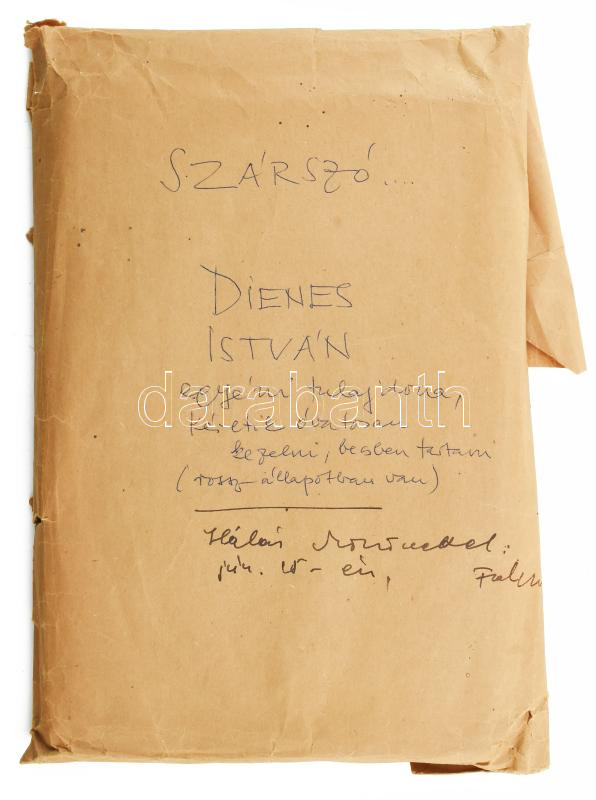 SZÁRSZÓ....
DIENES
ISTVÁN
egyéni tulajdona,
kéretik óvatosan
kezelni, becsben tartani
(rossz állapotban van)
Hálás köszönettel:
jún. 10-én,
darabanth